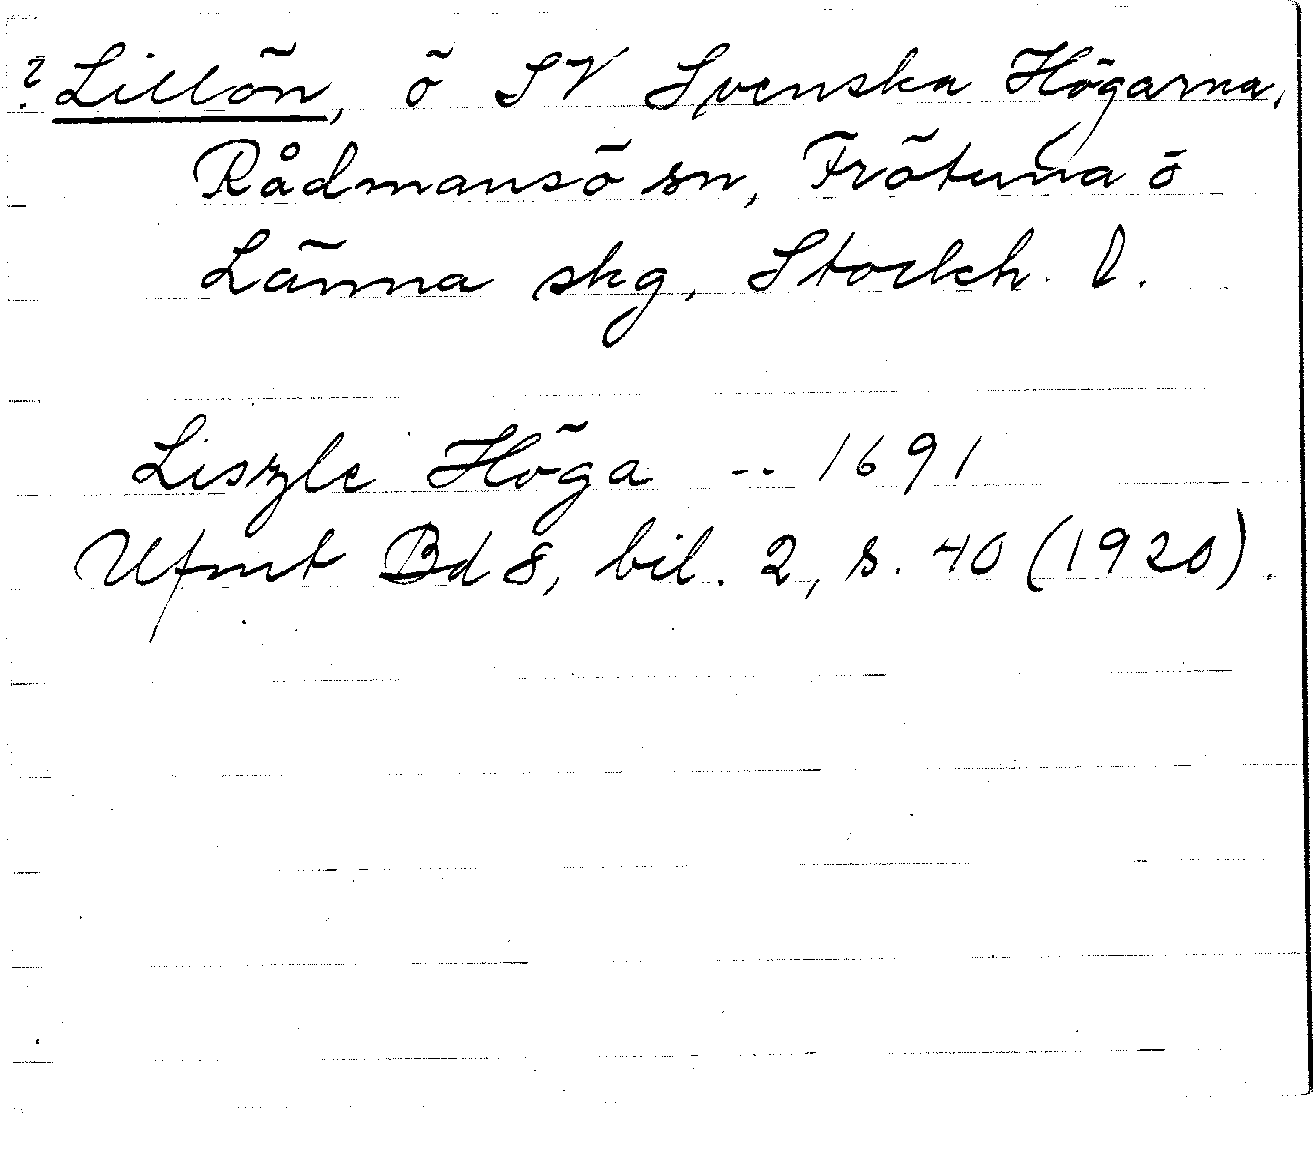 ? Lillön, ö SV Svenska Högarna,
Rådmansö sn, Frötuna o
Länna skg, Stockh. l.
Liszle Höga -- 1691
Ufmt Bd 8, bil. 2, s. 40 (1920).